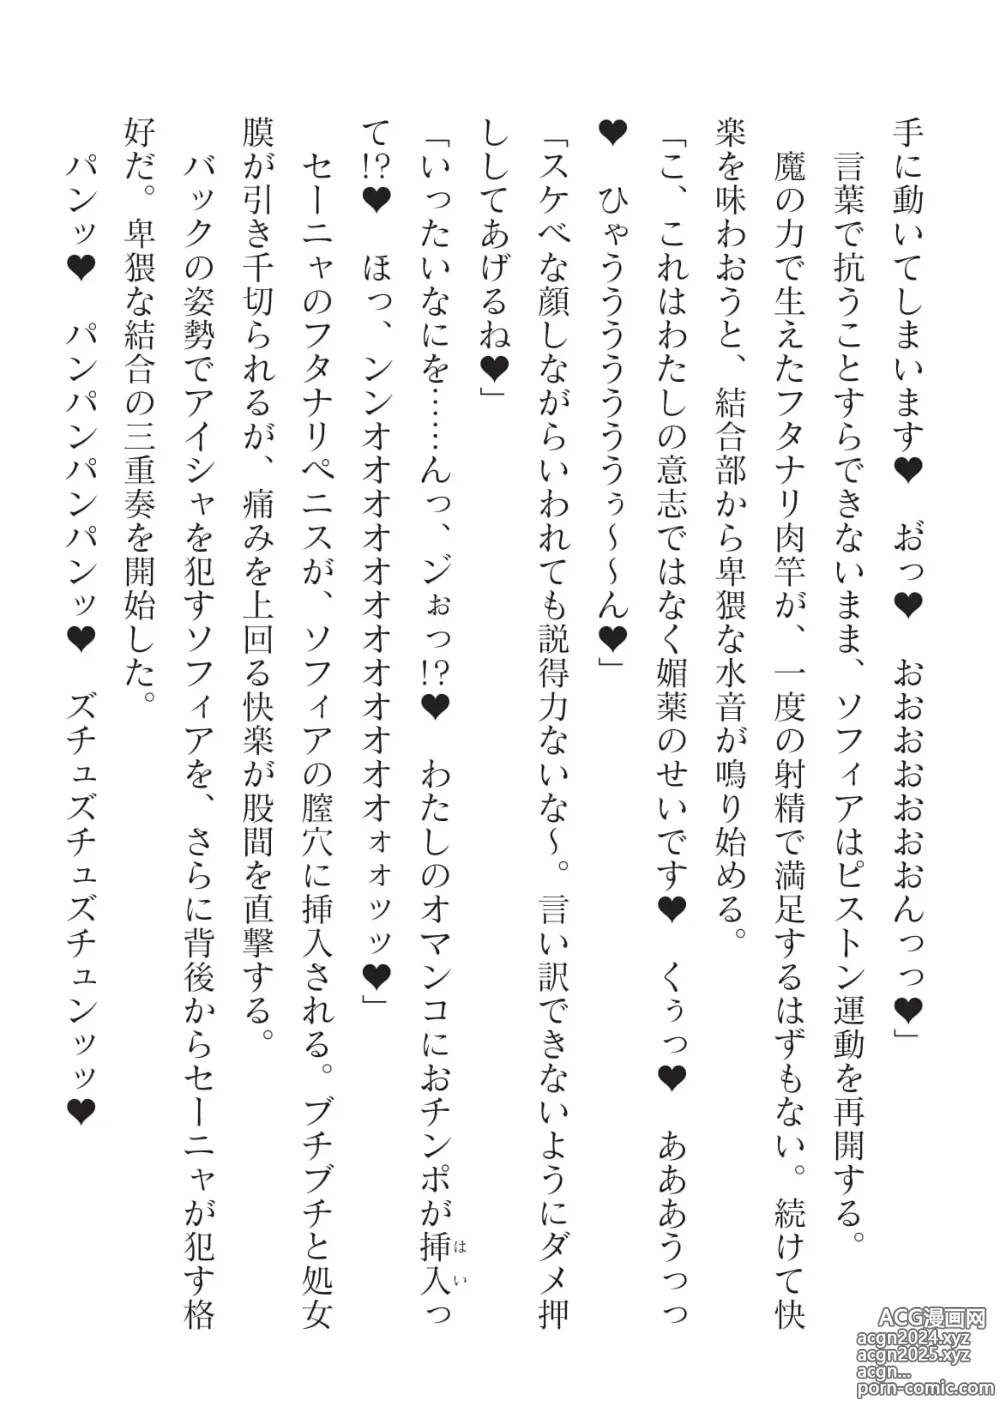 手に動いてしまいます♥　お゙っ♥　おおおおおおおんっっ♥」
　言葉で抗うことすらできないまま、ソフィアはピストン運動を再開する。
　魔の力で生えたフタナリ肉竿が、一度の射精で満足するはずもない。続けて快
楽を味わおうと、結合部から卑猥な水音が鳴り始める。
「こ、これはわたしの意志ではなく媚薬のせいです♥　くぅっ♥　あああうっっ
♥　ひゃううううううううぅ～～ん♥」
「スケベな顔しながらいわれても説得力ないな～。言い訳できないようにダメ押
ししてあげるね♥」
「いったいなにを……んっ、ジぉっ!?♥　わたしのオマンコにおチンポが挿入っ
はい
て!?♥　ほっ、ンンオオオオオオオオオオオオォォッッ♥」
　セーニャのフタナリペニスが、ソフィアの膣穴に挿入される。ブチブチと処女
膜が引き千切られるが、痛みを上回る快楽が股間を直撃する。
　バックの姿勢でアイシャを犯すソフィアを、さらに背後からセーニャが犯す格
好だ。卑猥な結合の三重奏を開始した。
　パンッ♥　パンパンパンパンッ♥　ズチュズチュズチュンッッ♥
ACG漫画网
acgn2024.xyz
acgn2025.xyz
acgn...
porn-comic.com